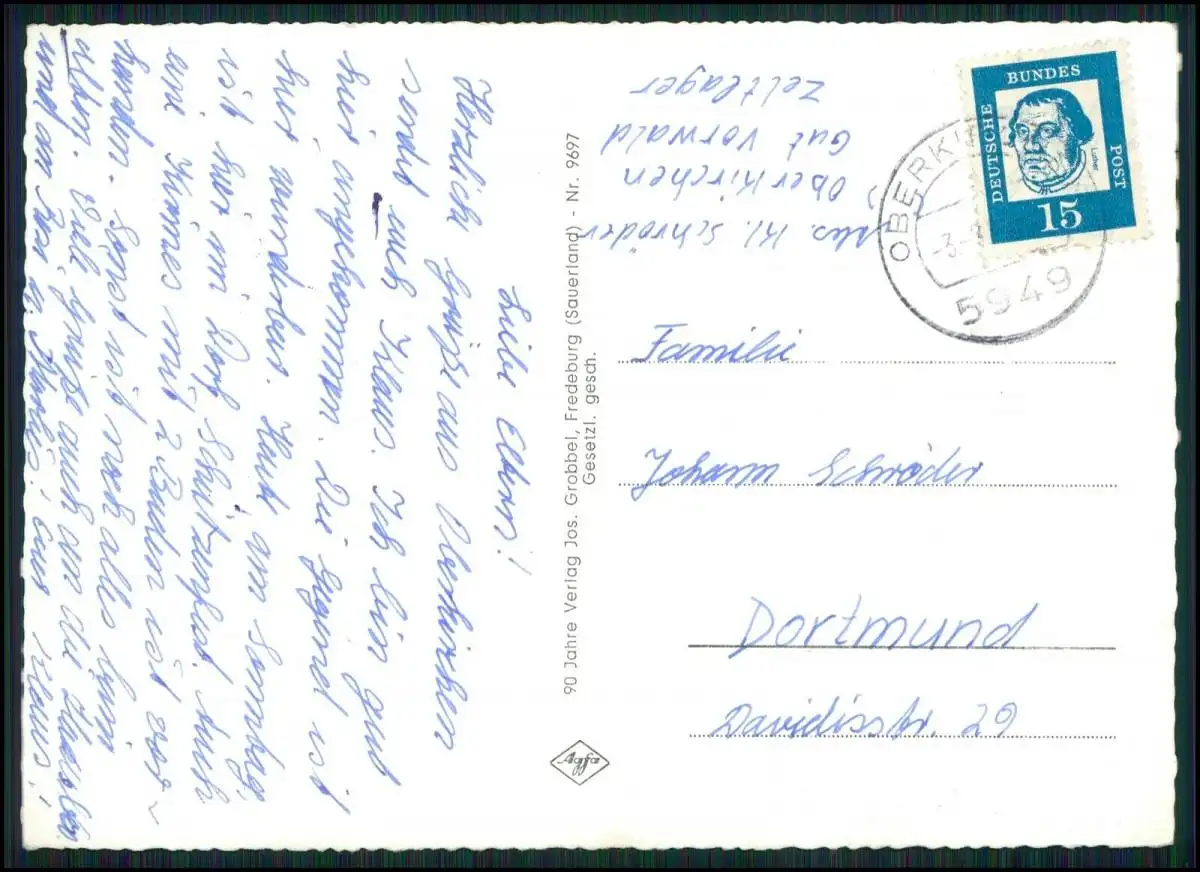 Liebe Eltern!
Herzlich Grüße aus Oberkirchen
sendet euch Klaus. Ich bin gut
hier angekommen. Die Gegend ist
hier wunderbar. Heute am Sonntag,
ist hier im Dorf Schützenfest. Auch
eine Kirmes mit 2 Buden ist vor-
handen. Sonst ist noch alles beim
alten. Viele Grüße auch an die
und an u. euer Klaus!
90 Jahre Verlag Jos. Grobbel, Fredeburg (Sauerland) - Nr. 9697
Gesetzl. gesch.
Agfa
Abs. Kl. Schröder
Oberkirchen
Gut Vorwald
Zeltlager
DEUTSCHE
BUNDES
POST
Luther
15
OBERKI
-3.
5949
Familie
Johann Schröder
Dortmund
Davidisstr. 29